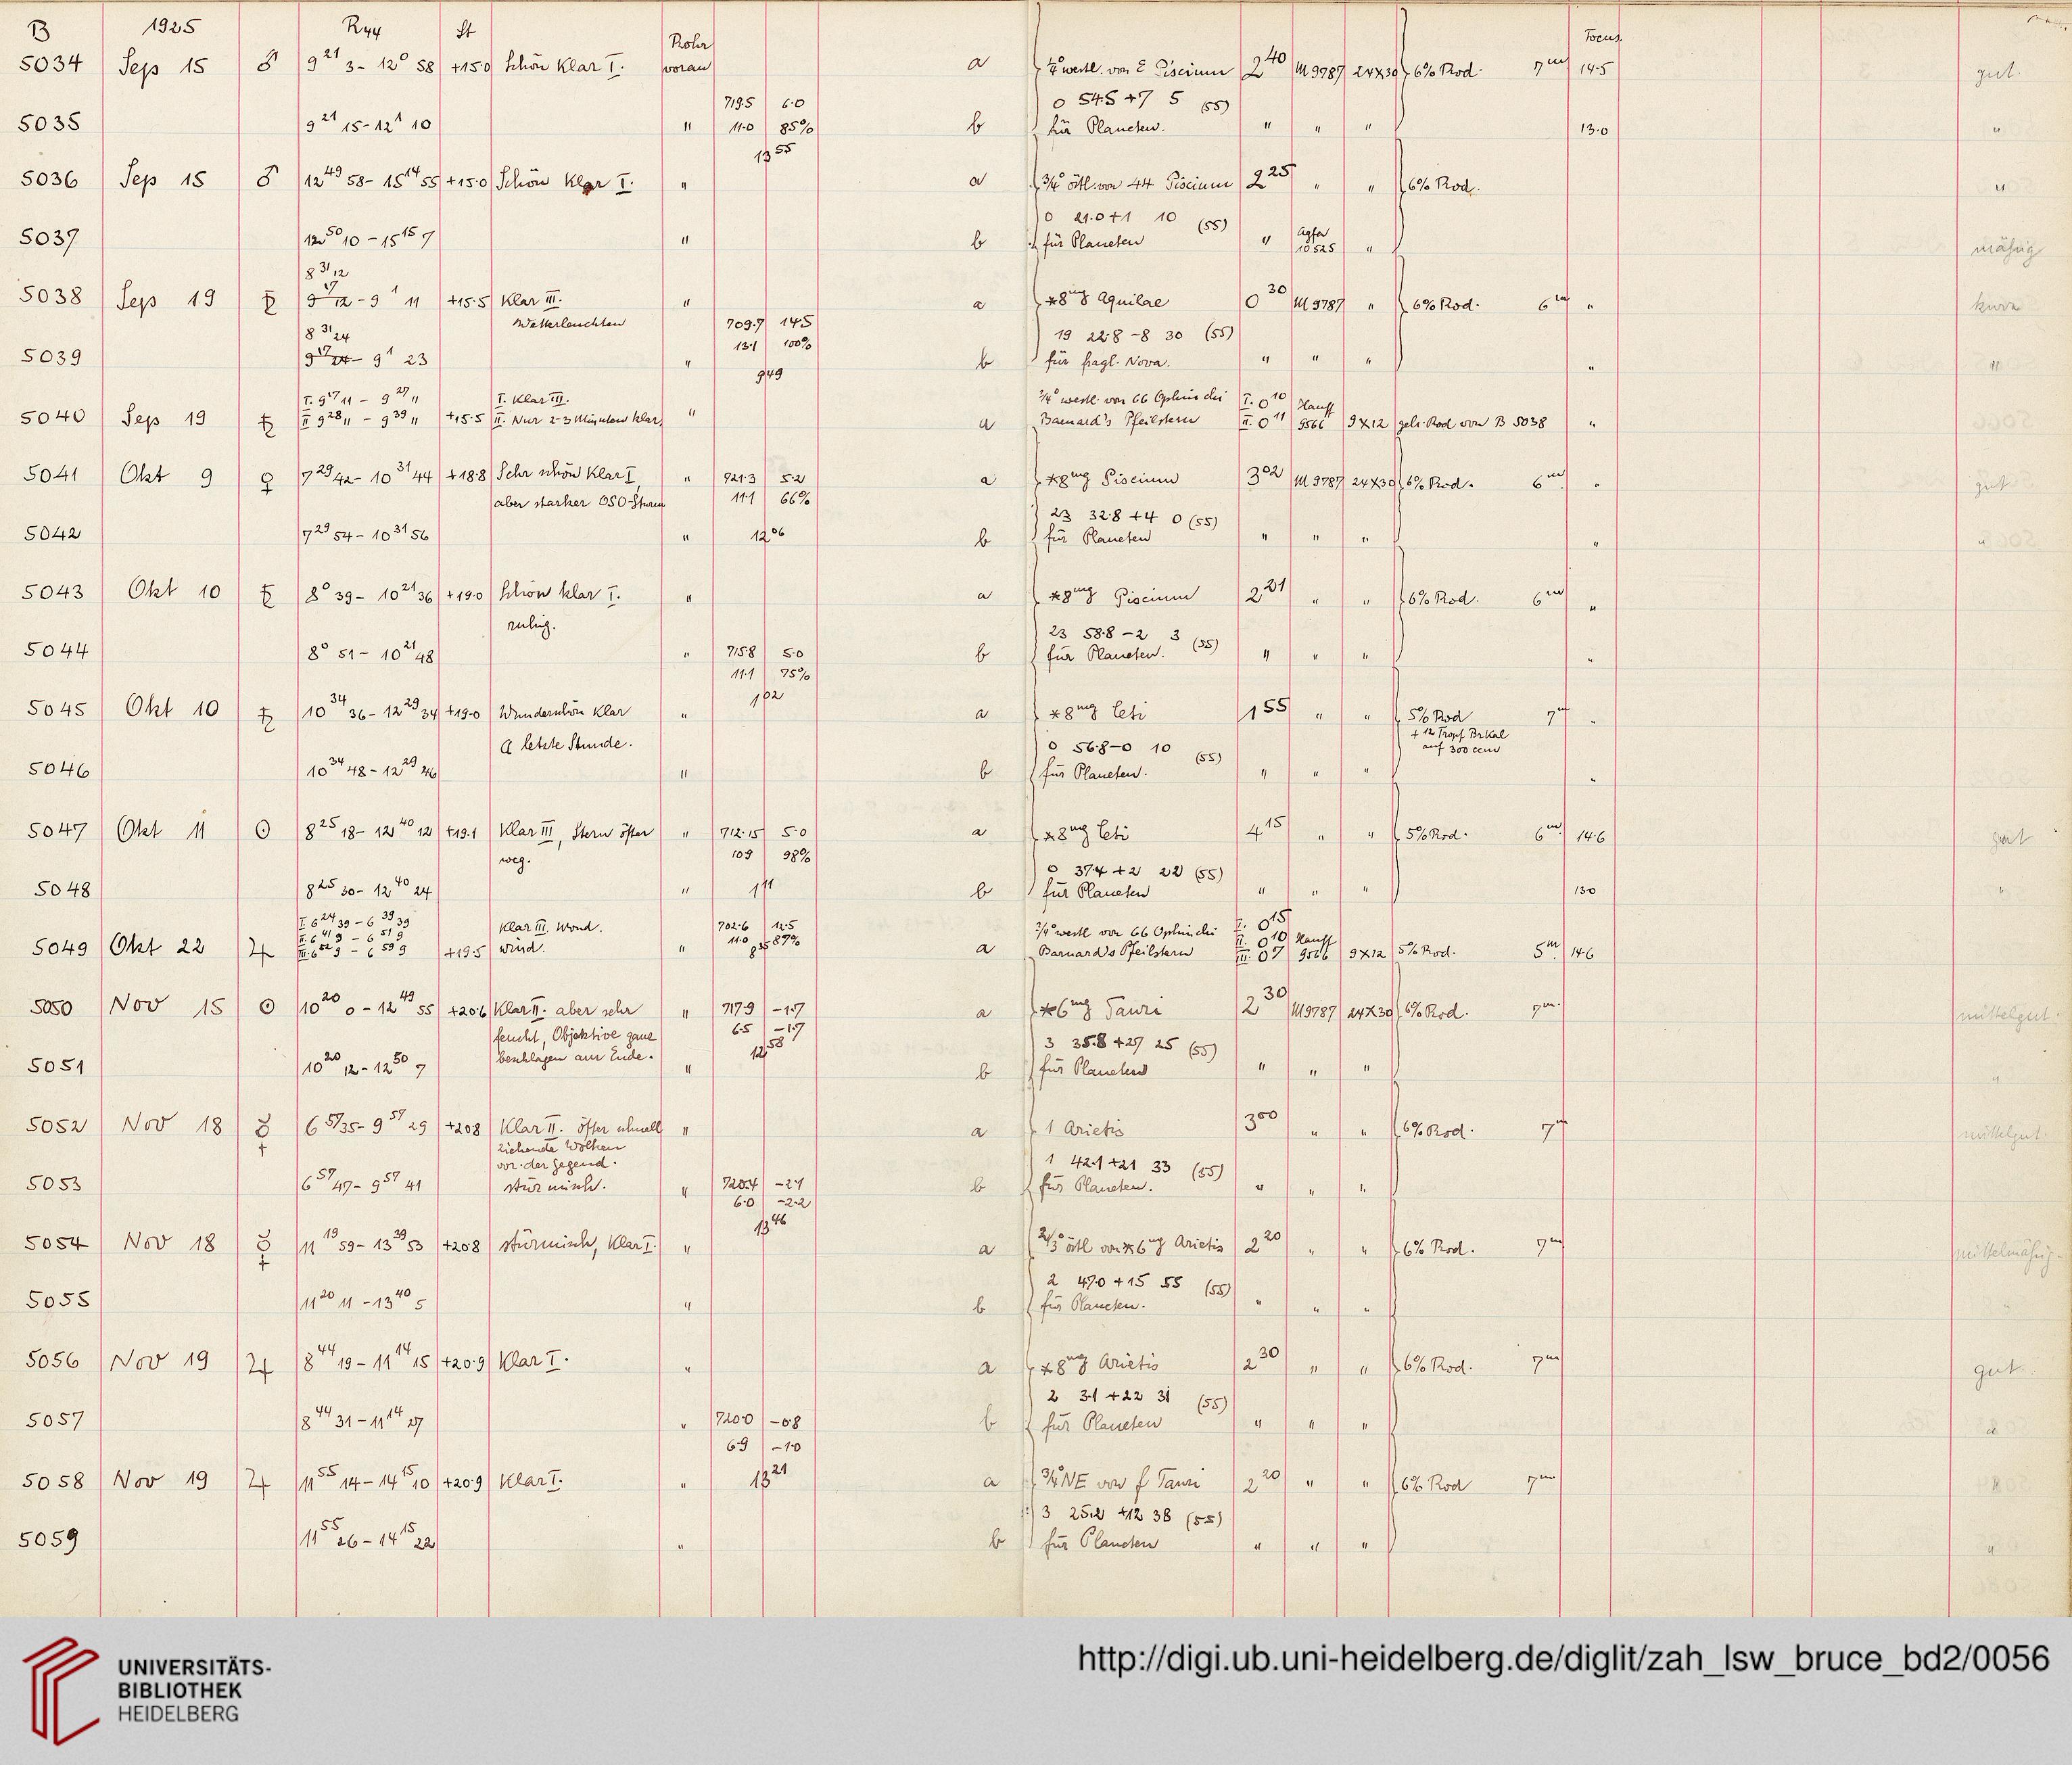 B 1925 R44 St Rohr Focus
5034 Sep 15 ♂ 9 21 3 - 12 0 58 +15.0 Schön klar I. voran a westl. von ε Piscium 2 40 M 9787 24×30 6% Rod. 7m 14.5 gut.
719.5 6.0 0 54.5 +7 5 (55)
5035 9 21 15 - 12 1 10 " 11.0 85% b für Planeten. " " " 13.0 "
13 55
5036 Sep 15 ♂ 12 49 58 - 15 14 55 +15.0 Schön klar I. " a 3/4° östl. von 44 Piscium 2 25 " " 6% Rod. "
0 21.0 +1 10 (55)
5037 12 50 10 - 15 15 7 " b für Planeten " Agfa 10525 " mäßig
8 31 12
5038 Sep 19 ♄ 9 17 12 - 9 1 11 +15.5 Klar III. " a *8mg Aquilae 0 30 M 9787 " 6% Rod. 6m " kurz
Wetterleuchten 709.7 14.5
8 31 24 13.1 100% 19 22.8 -8 30 (55)
5039 9 17 24 - 9 1 23 " b für fragl. Nova. " " " " "
9 49
I. 9 17 11 - 9 27 11 I. Klar III. 3/4° westl. von 66 Ophiuchi I. 0 10 Hauff
5040 Sep 19 ♄ II 9 28 11 - 9 39 11 +15.5 II. Nur 2-3 Minuten klar. " a Barnard's Pfeilstern II. 0 11 9566 9×12 gebr. Rod von B 5038 "
5041 Okt 9 ♀ 7 29 42 - 10 31 44 +18.8 Sehr schön klar I, " 721.3 5.2 a *8mg Piscium 3 02 M 9787 24×30 6% Rod. 6m " gut
aber starker OSO-Sturm 11.1 66%
23 32.8 +4 0 (55)
5042 7 29 54 - 10 31 56 " 12 06 b für Planeten " " " " "
5043 Okt 10 ♄ 8 0 39 - 10 21 36 +19.0 Schön klar I. " a *8mg Piscium 2 21 " " 6% Rod. 6m "
ruhig.
23 58.8 -2 3 (55)
5044 8 0 51 - 10 21 48 " 715.8 5.0 b für Planeten. " " " "
11.1 75%
1 02
5045 Okt 10 ♄ 10 34 36 - 12 29 34 +19.0 Wunderschön klar " a *8mg Ceti 1 55 " " 5% Rod 7m "
+ 12 Tropf BrKal
☾ letzte Stunde. auf 300 ccm
0 56.8 -0 10 (55)
5046 10 34 48 - 12 29 46 " b für Planeten. " " " "
5047 Okt 11 ☉ 8 25 18 - 12 40 12 +19.1 Klar III, Stern öfter " 712.15 5.0 a *8mg Ceti 4 15 " " 5% Rod. 6m 14.6 gut
weg. 10.9 98%
0 37.4 +2 22 (55)
5048 8 25 30 - 12 40 24 " 1 11 b für Planeten " " " 13.0 "
I 6 24 39 - 6 39 39 Klar III. Mond. 702.6 12.5 3/4° westl von 66 Ophiuchi I. 0 15
II. 6 41 9 - 6 51 9 11.0 89% II. 0 10 Hauff
5049 Okt 22 ♃ III. 6 52 9 - 6 59 9 +19.5 Wind. " 8 35 a Barnard's Pfeilstern III. 0 7 9566 9×12 5% Rod. 5m. 14.6
5050 Nov 15 ☉ 10 20 0 - 12 49 55 +20.6 Klar II. aber sehr " 717.9 -1.7 a *6mg Tauri 2 30 M 9787 24×30 6% Rod. 7m. mittelgut.
feucht, Objektive ganz 6.5 -1.7
beschlagen am Ende. 12 58 3 35.8 +27 25 (55)
5051 10 20 12 - 12 50 7 " b für Planeten " " " "
5052 Nov 18 ☿ 6 57 35 - 9 57 29 +20.8 Klar II. öfter schnell " a 1 Arietis 3 00 " " 6% Rod. 7m mittelgut.
ziehende Wolken
vor der Gegend. 1 42.1 +21 33 (55)
5053 6 57 47 - 9 57 41 stürmisch. " 720.4 -2.1 b für Planeten. " " "
6.0 -2.2
13 46
5054 Nov 18 ☿ 11 19 59 - 13 39 53 +20.8 stürmisch, Klar I. " a 2/3° östl von *6mg Arietis 2 20 " " 6% Rod. 7m mittelmäßig.
2 47.0 +15 55 (55)
5055 11 20 11 - 13 40 5 " b für Planeten. " " " "
5056 Nov 19 ♃ 8 44 19 - 11 14 15 +20.9 Klar I. " a *8mg Arietis 2 30 " " 6% Rod. 7m gut.
2 3.1 +22 31 (55)
5057 8 44 31 - 11 14 27 " 720.0 -0.8 b für Planeten " " " "
6.9 -1.0
5058 Nov 19 ♃ 11 55 14 - 14 15 10 +20.9 Klar I. " 13 21 a 3/4° NE von f Tauri 2 20 " " 6% Rod 7m "
3 25.2 +12 38 (55)
5059 11 55 26 - 14 15 22 " b für Planeten " " " "
UNIVERSITÄTS-
BIBLIOTHEK
HEIDELBERG
http://digi.ub.uni-heidelberg.de/diglit/zah_lsw_bruce_bd2/0056